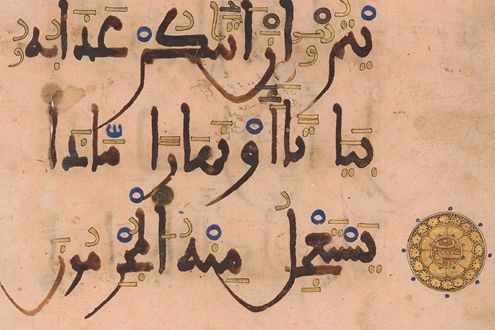 يتم إن أتيكم عذابه
بياتا أو نهارا ماذا
يستعجل منه المجرمون